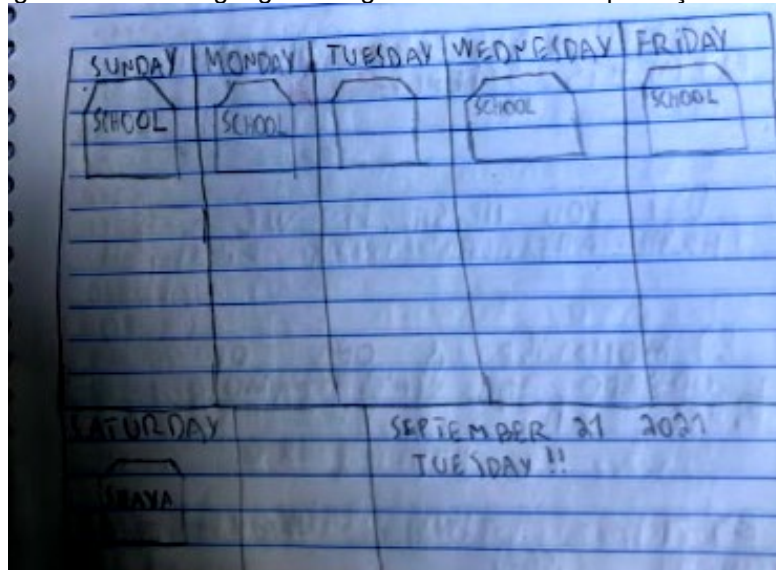 SUNDAY MONDAY TUESDAY WEDNESDAY FRIDAY
SCHOOL SCHOOL SCHOOL SCHOOL
SATURDAY SEPTEMBER 21 2021
TUESDAY !!